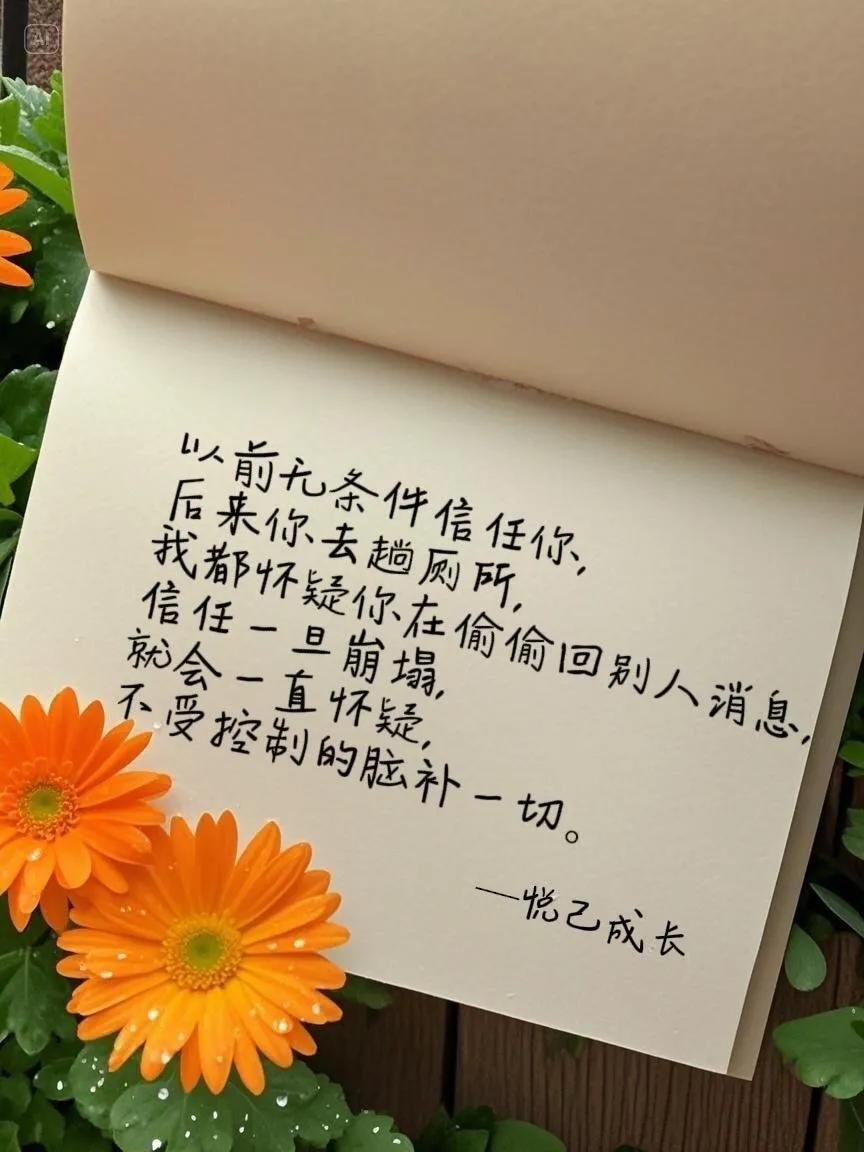 AI
以前无条件信任你,
后来你去趟厕所,
我都怀疑你在偷偷回别人消息,
信任一旦崩塌,
就会一直怀疑,
不受控制的脑补一切。
——悦己成长